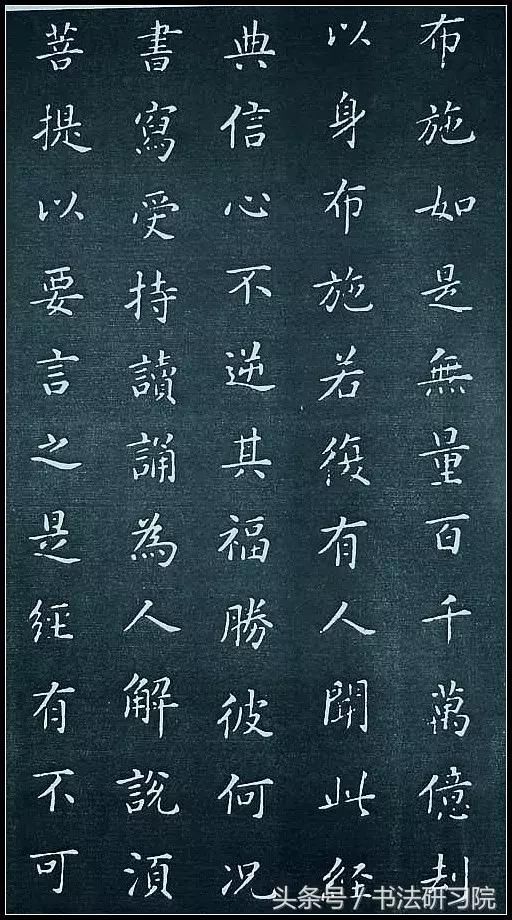 布施如是無量百千萬億刦
以身布施若復有人聞此經
典信心不逆其福勝彼何况
書寫受持讀誦為人解說須
菩提以要言之是經有不可
头条号 / 书法研习院